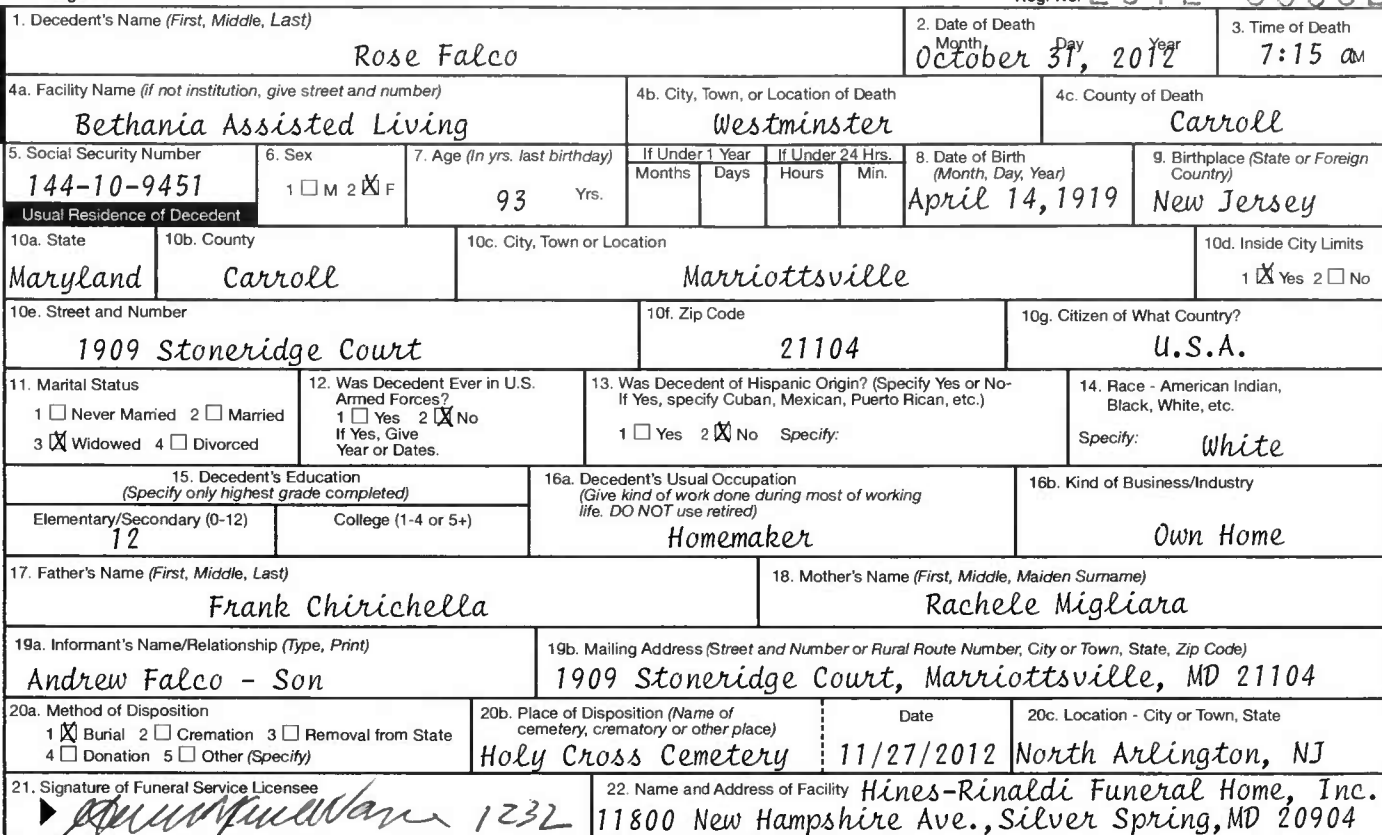 Reg. No.
1. Decedent's Name (First, Middle, Last)
Rose Falco
2. Date of Death
Month Day Year
October 31, 2012
3. Time of Death
7:15 am
4a. Facility Name (if not institution, give street and number)
Bethania Assisted Living
4b. City, Town, or Location of Death
Westminster
4c. County of Death
Carroll
5. Social Security Number
144-10-9451
6. Sex
1 ☐ M 2 ☒ F
7. Age (In yrs. last birthday)
93 Yrs.
If Under 1 Year
Months Days
If Under 24 Hrs.
Hours Min.
8. Date of Birth
(Month, Day, Year)
April 14, 1919
9. Birthplace (State or Foreign
Country)
New Jersey
Usual Residence of Decedent
10a. State
Maryland
10b. County
Carroll
10c. City, Town or Location
Marriottsville
10d. Inside City Limits
1 ☒ Yes 2 ☐ No
10e. Street and Number
1909 Stoneridge Court
10f. Zip Code
21104
10g. Citizen of What Country?
U.S.A.
11. Marital Status
1 ☐ Never Married 2 ☐ Married
3 ☒ Widowed 4 ☐ Divorced
12. Was Decedent Ever in U.S.
Armed Forces?
1 ☐ Yes 2 ☒ No
If Yes, Give
Year or Dates.
13. Was Decedent of Hispanic Origin? (Specify Yes or No-
If Yes, specify Cuban, Mexican, Puerto Rican, etc.)
1 ☐ Yes 2 ☒ No Specify:
14. Race - American Indian,
Black, White, etc.
Specify: White
15. Decedent's Education
(Specify only highest grade completed)
Elementary/Secondary (0-12)
12
College (1-4 or 5+)
16a. Decedent's Usual Occupation
(Give kind of work done during most of working
life. DO NOT use retired)
Homemaker
16b. Kind of Business/Industry
Own Home
17. Father's Name (First, Middle, Last)
Frank Chirichella
18. Mother's Name (First, Middle, Maiden Surname)
Rachele Migliara
19a. Informant's Name/Relationship (Type, Print)
Andrew Falco - Son
19b. Mailing Address (Street and Number or Rural Route Number, City or Town, State, Zip Code)
1909 Stoneridge Court, Marriottsville, MD 21104
20a. Method of Disposition
1 ☒ Burial 2 ☐ Cremation 3 ☐ Removal from State
4 ☐ Donation 5 ☐ Other (Specify)
20b. Place of Disposition (Name of
cemetery, crematory or other place)
Holy Cross Cemetery
Date
11/27/2012
20c. Location - City or Town, State
North Arlington, NJ
21. Signature of Funeral Service Licensee
1232
22. Name and Address of Facility Hines-Rinaldi Funeral Home, Inc.
11800 New Hampshire Ave., Silver Spring, MD 20904